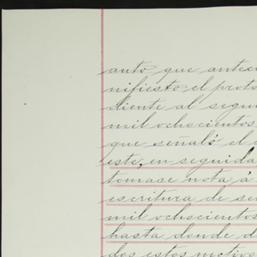 auto que antece
nifiesto el proto
diente al segun
mil ochocientos
que señaló el
este, en seguida
tomase nota á
escritura de se
mil ochocientos
hasta donde d
dos estos motivo